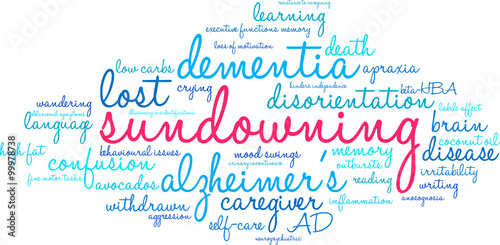 resistance to caregiving
learning
executive functions memory
loss of motivation
death
dementia
low carbs
apraxia
crying
hinders independence
beta-HBA
lost
wandering
disorientation
labile effect
behavioral symptoms
language
sundowning
brain
coconut oil
high fat
behavioural issues
mood swings
memory
disease
confusion
urinary incontinence
outbursts
irritability
fine motor tasks
avocados
alzheimer's
reading
writing
withdrawn
caregiver
inflammation
anosognosia
aggression
self-care
AD
neuropsychiatric
© 99978738